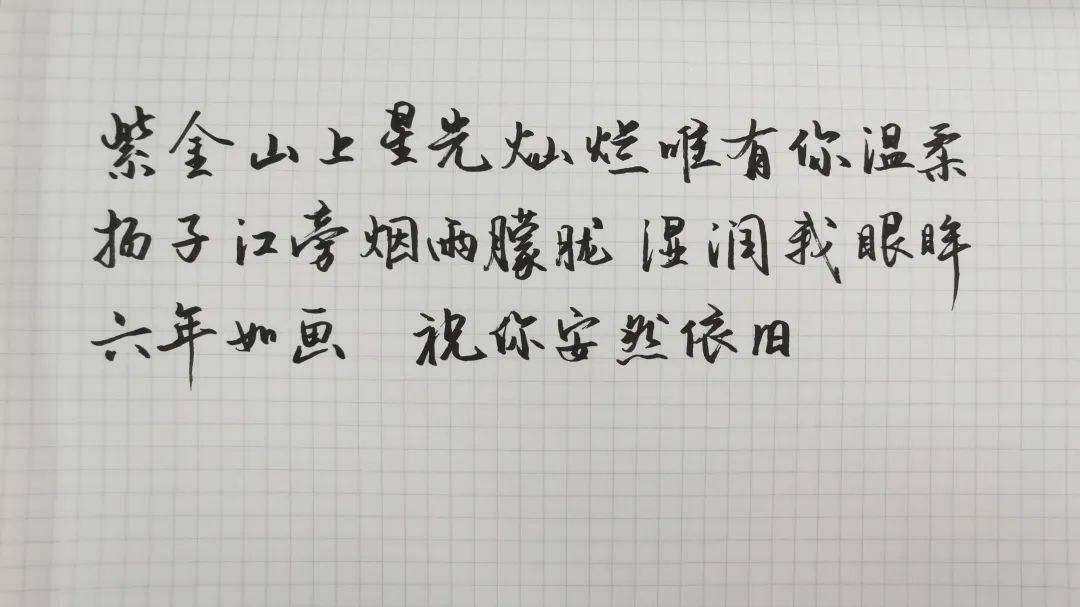 紫金山上星光灿烂唯有你温柔
扬子江旁烟雨朦胧 湿润我眼眸
六年如画 祝你安然依旧